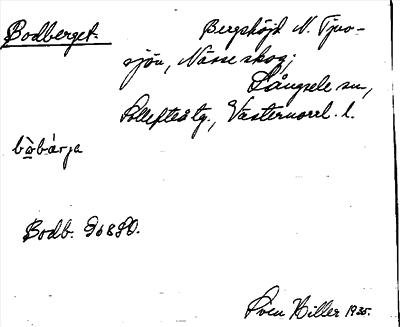 Bodberget.
Bergshöjd N. Tjuv-
sjön, Nässe skog;
Långsele sn,
Sollefteå tg., Västernorrl. l.
bo̲bárja
Bodb.
Sven Hiller 1935.